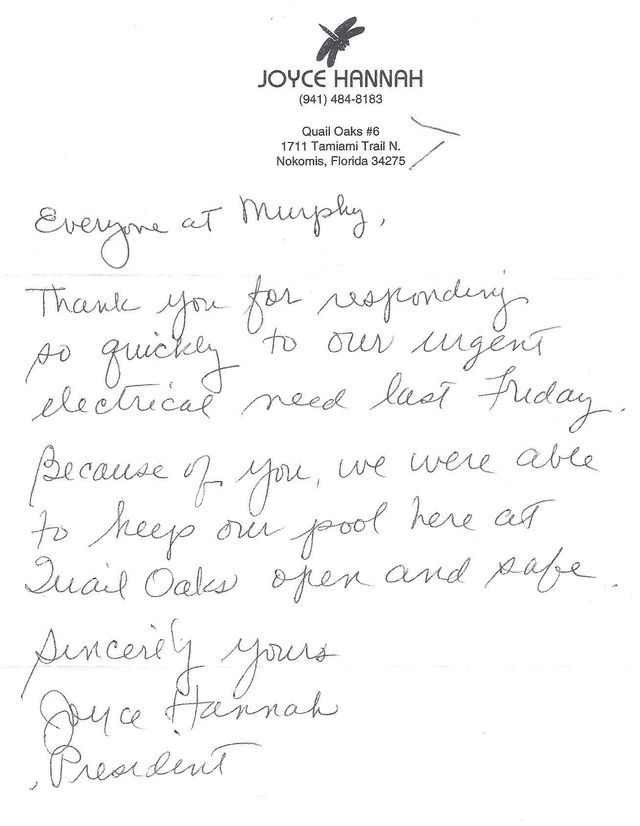 JOYCE HANNAH
(941) 484-8183
Quail Oaks #6
1711 Tamiami Trail N.
Nokomis, Florida 34275
Everyone at Murphy,
Thank you for responding
so quickly to our urgent
electrical need last Friday.
Because of you, we were able
to keep our pool here at
Quail Oaks open and safe.
Sincerely yours
Joyce Hannah
President